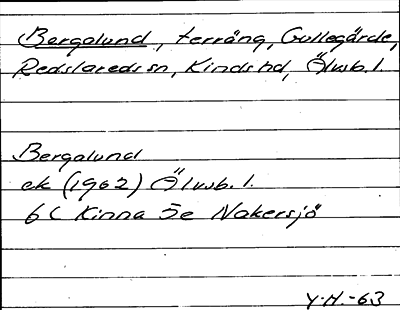 Bergalund, terräng, Gullegärde,
Redslareds sn, Kinds hd, Älvsb. l.
Bergalund
ek (1962) Älvsb. l.
6C Kinna 5e Nakersjö
Y.H.-63